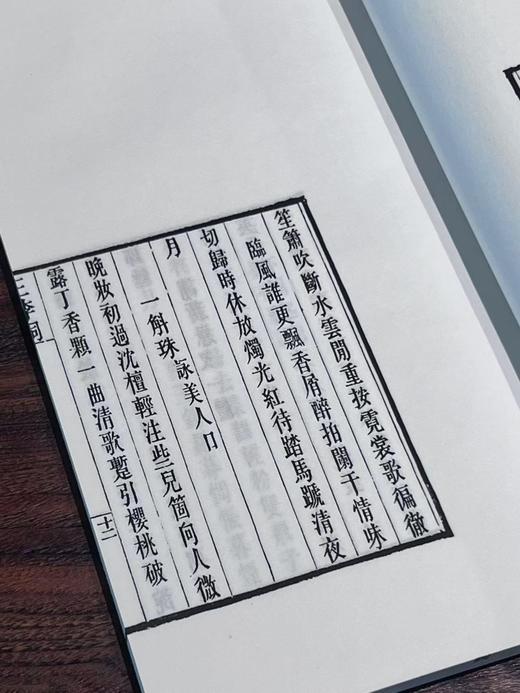 笙簫吹斷水雲閒重按霓裳歌徧徹
臨風誰更飄香屑醉拍闌干情味
切歸時休放燭光紅待踏馬蹏清夜
月
一斛珠 詠美人口
晚妝初過沈檀輕注些兒箇向人微
露丁香顆一曲清歌蹔引櫻桃破
十二